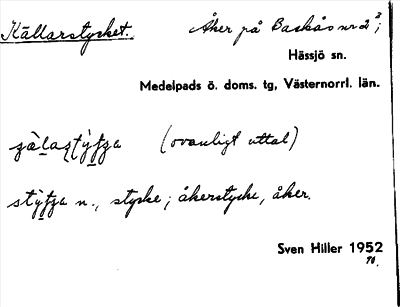 Källarstycket. Åker på Backås nr 2²;
Hässjö sn.
Medelpads ö. doms. tg, Västernorrl. län.
(ovanligt uttal)
n., stycke; åkerstycke, åker.
Sven Hiller 1952